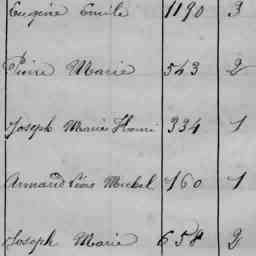 Eugène Emile 1190 3
Pierre Marie 543 2
Joseph Marie Henri 334 1
Armand Michel 160 1
Joseph Marie 658 2